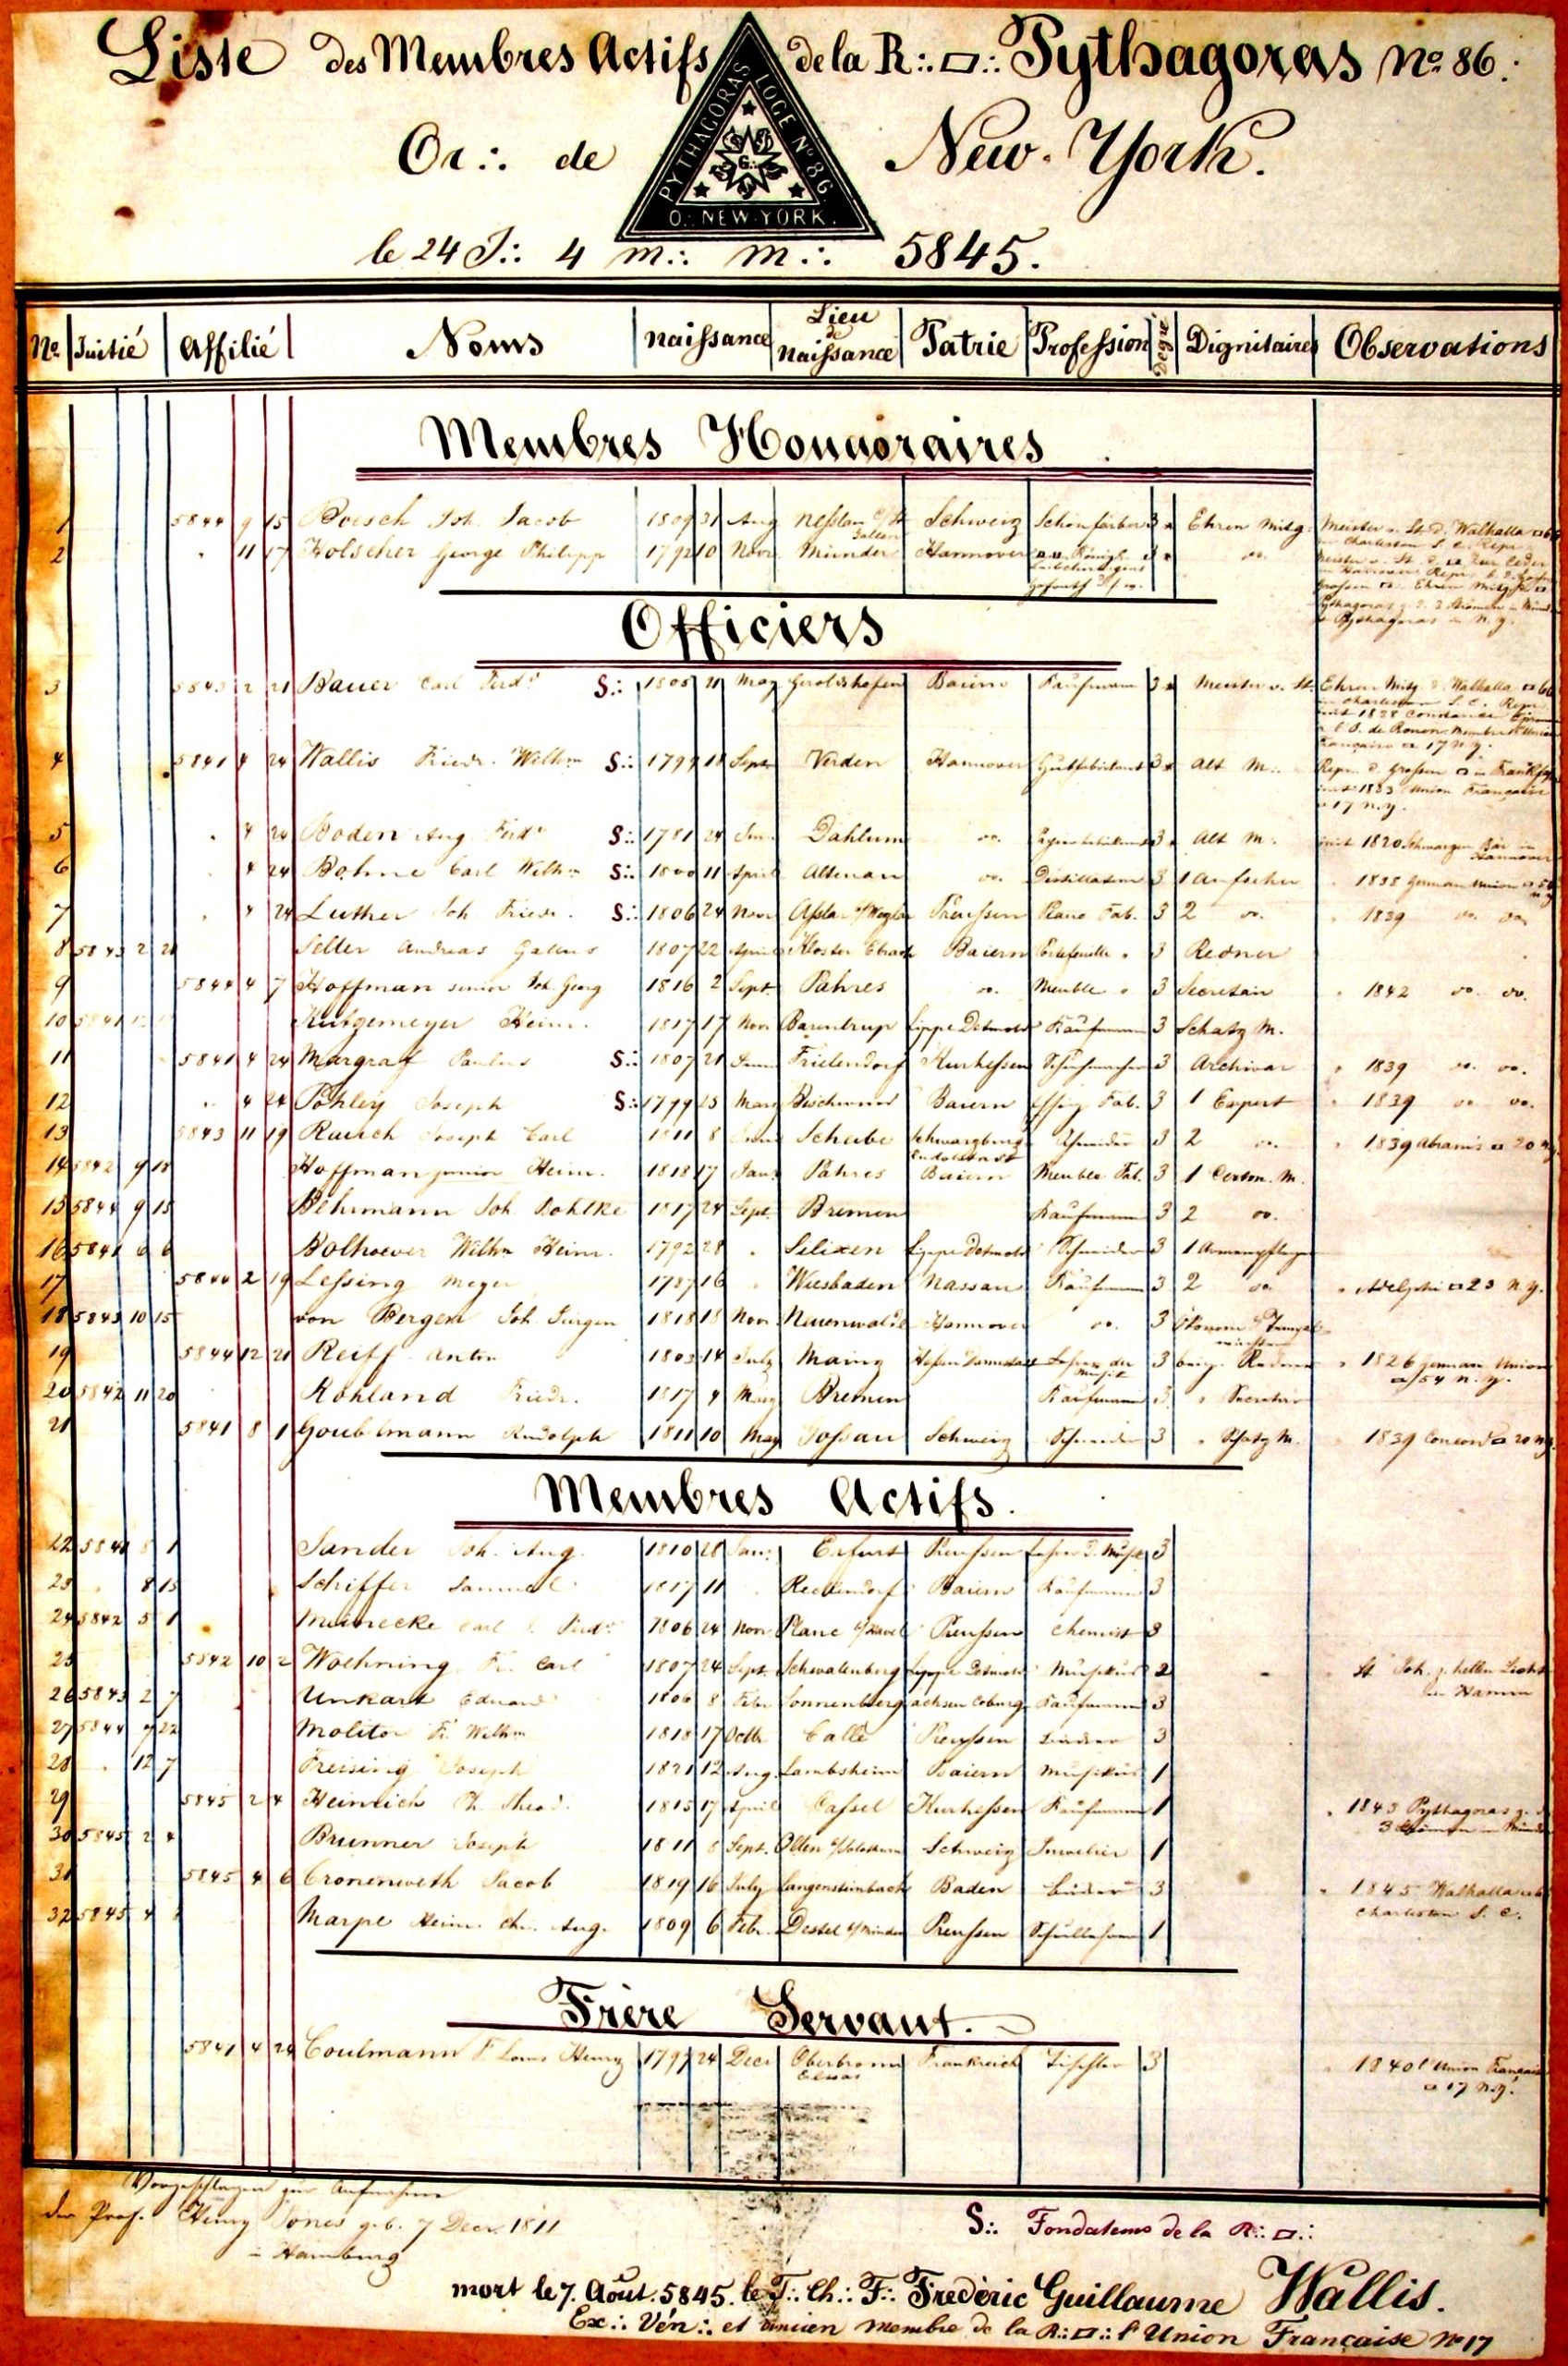 Liste des Membres Actifs de la R∴ ▭∴ Pythagoras No 86.
PYTHAGORAS LOGE No 86.
G∴
O∴ NEW-YORK.
Or∴ de New-York.
le 24 J∴ 4 m∴ m∴ 5845.
No Initié Affilié Noms naissance Lieu de naissance Patrie Profession Degré Dignitaires Observations
Membres Honnoraires
1 5844 9 15 Boesch Joh. Jacob 1809 31 Aug Schweiz Schönfärber 3 Ehren Mitg. Meister v. St. d. Walhalla
2 " 11 17 Holscher George Philipp 1792 10 Novr Münder Hannover
Officiers
3 5843 2 21 Bauer Carl Ferdd S∴ 1808 21 May Gerolzhofen Baiern Kaufmann 3 Meister v. St. Ehren Mitg. d. Walhalla
in Charleston S. C. Repr.
4 5841 4 24 Wallis Friedr. Wilhm S∴ 1799 18 Septr Verden Hannover 3 Alt M∴ Repr. d. Grossen ▭ in
init 1833 Union Française
17 N.Y.
5 " 4 24 Boden Aug. Ferd S∴ 1781 24 Dahlum do. 3 Alt M. init 1820 Schwarzen Bär in Hannover
6 " 4 24 Bohne Carl Wilhm S∴ 1800 11 April Altenau do. Distillateur 3 1 Aufseher " 1838 German Union
7 " 4 24 Luther Joh. Friedr. S∴ 1806 24 Novr Preussen Piano Fab. 3 2 do. " 1839 do. do.
8 5843 2 21 Seller Andreas Gallus 1807 22 April Kloster Ebrach Baiern Portefeuille " 3 Redner
9 5844 4 7 Hoffman senior Joh. Georg 1816 2 Sept. Pahres do. Meuble " 3 Secretair " 1842 do. do.
10 5841 Heinr. 1817 17 Novr Barntrup Lippe Detmold Kaufmann 3 Schatz M.
11 5841 4 24 Margraf Paulus S∴ 1807 21 Frielendorf Kurhessen Schuhmacher 3 Archivar " 1839 do. do.
12 " 4 24 Pöhley Joseph S∴ 1799 25 Baiern Essig Fab. 3 1 Expert " 1839 do do.
13 5843 11 19 Rauch Joseph Carl 1811 8 Scheibe Schwarzburg Rudolstadt Schneider 3 2 do. " 1839 Abrams ▭ 20
14 5842 9 18 Hoffman junior Heinr. 1818 17 Jan. Pahres Baiern Meuble Fab. 3 1 Cerem. M.
15 5844 9 15 Behrmann Joh. 1817 24 Sept. Bremen Kaufmann 3 2 do.
16 5841 6 6 Bolhoever Wilhm Heinr. 1792 28 " Silixen Lippe Detmold Schneider 3 1 Armenpfleger
17 5844 2 19 Lessing Meyer 1787 16 " Wiesbaden Nassau Kaufmann 3 2 do. " Adelphi ▭ 23 N.Y.
18 5843 10 15 von Bergen Joh. Jürgen 1818 18 Novr Neuenwalde Hannover do. 3 Ökonom
19 5844 12 21 Reiff Anton 1803 14 July Mainz Hessen Darmstadt Lehrer der Musik 3 Redner " 1826 German Union
▭ 54 N.Y.
20 5842 11 20 Rohland Friedr. 1817 4 März Bremen Kaufmann 3 " Secretair
21 5841 8 1 Goubelmann Rudolph 1811 10 May Gossau Schweiz Schneider 3 " Schatz M. " 1839 Concord ▭ 20 N.Y.
Membres Actifs.
22 5841 8 1 Sander Joh. Aug. 1810 28 Jan. Erfurt Preussen Lehrer d. Musik 3
23 " 8 15 Schiffer Samuel 1817 11 " Reckendorf Baiern Kaufmann 3
24 5842 5 1 Meinecke Carl Ferdd 1806 24 Novr Plaue a/Havel Preussen Chemist 3
25 5842 10 2 Woehning Fr. Carl 1807 24 Sept. Schwalenberg Lippe Detmold Musikus 2 " St. Joh. z. hellen Licht
in Hamm
26 5843 2 7 Unkart Eduard 1806 8 Febr Sonnenberg Sachsen Coburg Kaufmann 3
27 5844 9 22 Molitor Fr. Wilhm 1818 17 Octbr Calle Preussen 3
28 " 12 7 Freising Joseph 1821 12 Aug. Lambsheim Baiern Musikus 1
29 5845 2 4 Heinrich Ph. Theod. 1815 17 April Cassel Kurhessen Kaufmann 1 " 1843 Pythagoras z. d.
3 Strömen in Münden
30 5845 2 4 Brunner Joseph 1811 8 Sept. Olten Schweiz Juwelier 1
31 5845 4 6 Cronenweth Jacob 1819 16 July Langensteinbach Baden 3 " 1845 Walhalla
Charleston S. C.
32 5845 4 Marpe Heinr. Chr. Aug. 1809 6 Febr. b/Minden Preussen Schullehrer 1
Frère Servant.
5841 4 24 Coulmann F. Louis Henry 1797 24 Decr Oberbronn Elsas Frankreich Tischler 3 " 1840 l'Union Française
▭ 17 N.Y.
Vorgeschlagen zur Aufnahme
der Prof. Henry Jones geb. 7 Decr. 1811
in Hamburg
S∴ Fondateurs de la R∴ ▭∴
mort le 7. Août. 5845. le T∴ Ch∴ F∴ Frédéric Guillaume Wallis.
Ex∴ Vén∴ et ancien membre de la R∴ ▭∴ l'Union Française No 17